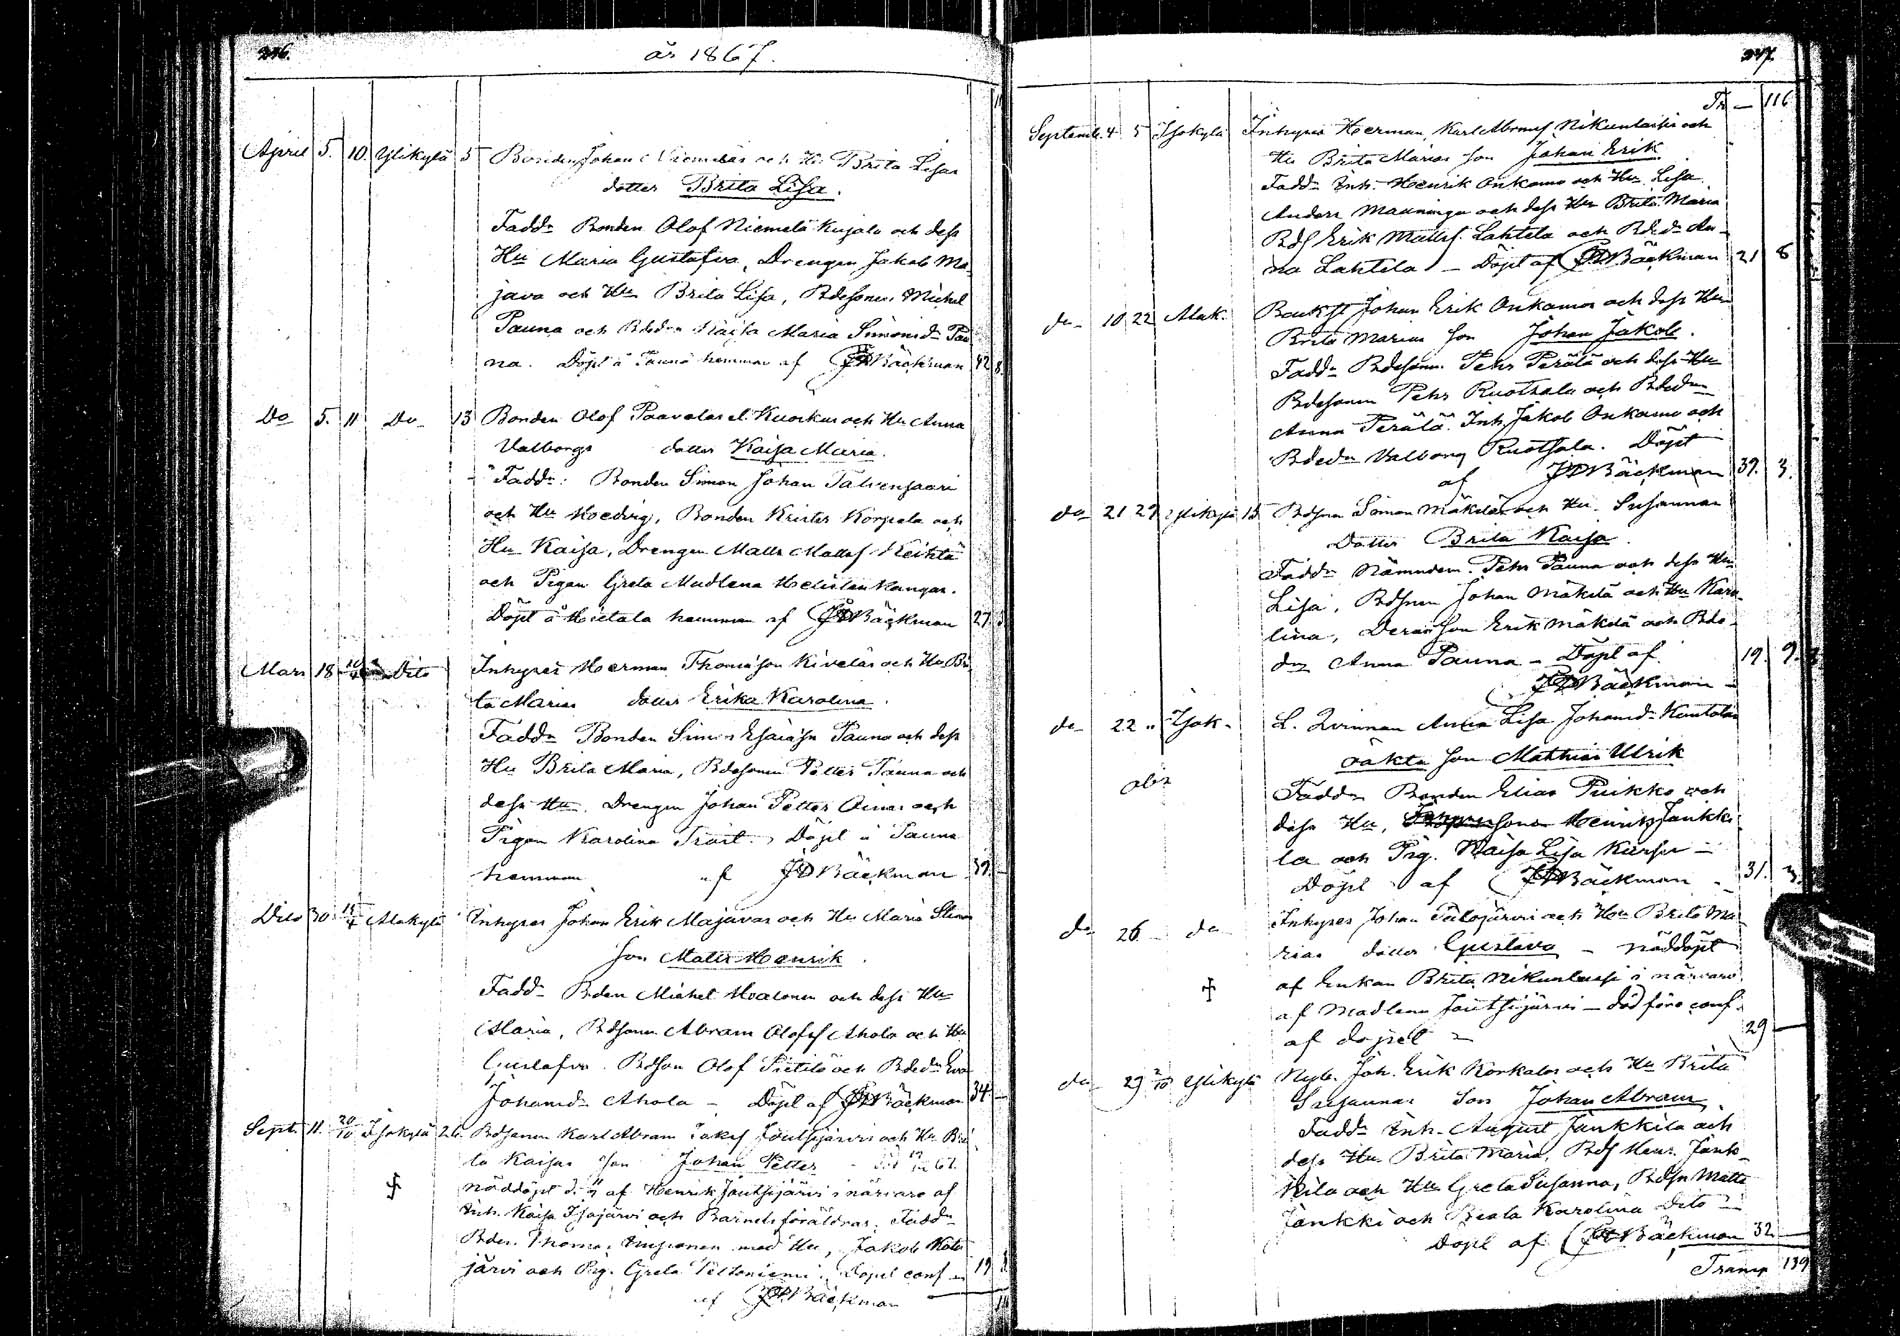 246.
år 1867.
April 5. 10. Ylikylä 5 Bonden Johan Niemeläs och Hu Brita Lisas
dotter Brita Lisa.
Fadd: Bonden Olof Niemelä Kujala och dess
Hu Maria Gustafva, Drengen Jakob Ma-
java och Hu Brita Lisa, Bdesonen Michel
Pauna och Bdedr Kaisa Maria Simonsdr Pau
na. Döpt å Pauna hemman af JDBäckman 42
Do 5. 11 Do 13 Bonden Olof Paavalas el. Kuorkus och Hu Anna
Valborgs dotter Kaisa Maria.
Fadd: Bonden Simon Johan Talvensaari
och Hu Hoedvig, Bonden Krister Korpela och
Hu Kaisa, Drengen Matts Mattsf
och Pigan Greta Madlena
Döpt å Hietala hemman af JDBäckman 27.
Mars 18 Dito Inhyses Herman Thomæson Kiveläs och Hu Bri
ta Marias dotter Erika Karolina.
Fadd Bonden Simon Esaiasson Pauna och dess
Hu Brita Maria, Bdesonen Petter Pauna och
dess Hu. Drengen Johan Petter och
Pigan Karolina Döpt å Pauna
hemman af JDBäckman 39.
Dito 30 15/4 Alakylä Inhyses Johan Erik Majavas och Hu Maria
Son Matts Henrik.
Fadd Bden Michel och dess Hu
Maria, Bdsonen Abram Olofsf Ahola och Hu
Gustafva. Bdson Olof Pietilä och Bdedr Eva
Johansdr Ahola - Döpt af JDBäckman 34 -
Sept. 11. 20/10 Isokylä 26. Bdsonen Karl Abram Jakf Joutsijärvi och Hu Bri
ta Kaisas Son Johan Petter - 67.
nöddöpt af Henrik Joutsijärvi i närvaro af
Inh. Kaisa Isojärvi och Barnets föräldrar. Fadd
Bden. Thomas med Hu, Jakob
järvi och Pig. Greta Peltoniemi. Döpel conf 19
af JDBäckman
247.
Tr - 116
Septemb. 4 5 Isokylä Inhyses Herman Karl Abramsf Nikunlassis och
Hu Brita Marias Son Johan Erik.
Fadd Inh. Henrik Onkamo och Hu Lisa.
Anders Mauninga och dess Hu Brita Maria
Bdf Erik Mattsf. Lahtela och Bdedr An-
na Lahtela - Döpt af JDBäckman 21 8
do 10 22 Alak. Johan Erik Onkamos och dess Hu
Brita Marias Son Johan Jakob.
Fadd Bdesonen Pehr Perälä och dess Hu
Bdesonen Pehr Ruotsala och Bdedr
Anna Perälä. Inh. Jakob Onkamo och
Bdedr Valborg Ruotsala. Döpt
af JDBäckman 39. 3.
do 21 29 Ylikylä 15 Bdsonen Simon Mäkeläs och Hu. Susannas
Dotter Brita Kaisa.
Fadd Nämndem. Pehr Pauna och dess Hu
Lisa, Bdsonen Johan Mäkelä och Hu Karo-
lina, Deras Son Erik Mäkelä och Bde-
dr Anna Pauna - Döpt af 19. 9.
JDBäckman
do 22 " Isok. L. Qvinnan Anna Lisa Johansdr
oäkta Son Mathias Ulrik
Fadd Bonden Elias Puikko och
dess Hu, sonen Henrik Jänkkä
la och Pig. Kaisa Lisa -
Döpt af JDBäckman 31. 3
do 26 do Inhyses Johan och Hu Brita Ma-
rias dotter Gustava - nöddöpt
af Enkan Brita Nikunlassi i närvaro
af Madlena Joutsijärvi - död före conf.
af döpet - 29 -
do 29 2/10 Ylikylä Nyb. Joh. Erik Korkalos och Hu Brita
Susannas Son Johan Abram
Fadd Inh. August Jänkkilä och
dess Hu. Brita Maria, Bdf Henr. Jänk-
kilä och Hu Greta Susanna, Bdsn Matts
Jänkki och Beata Karolina Dito -
Döpt af JDBäckman 32
Transp 139